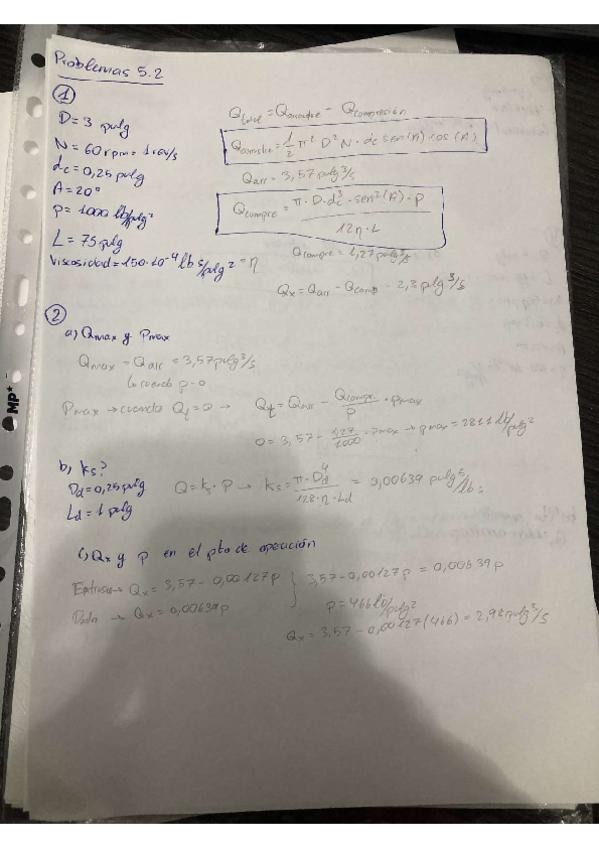 Problemas 5.2
①
D = 3 pulg
N = 60 rpm = 1 rev/s
dc = 0,25 pulg
A = 20°
P = 1000 lb/pulg²
L = 75 pulg
Viscosidad = 150·10⁻⁴ lb s/pulg² = η
Qtotal = Qarrastre - Qcompresión
Qarrastre = 1/2 π² D² N · dc sen(A) cos(A)
Qarr = 3,57 pulg³/s
Qcompre = π · D · dc³ · sen²(A) · P / 12η · L
Qcompre = 1,27 pulg³/s
Qx = Qarr - Qcomp = 2,3 pulg³/s
②
a) Qmax y Pmax
Qmax = Qarr = 3,57 pulg³/s
↳ cuando p = 0
Pmax → cuando Qt = 0 → Qt = Qarr - Qcompr/P · pmax
0 = 3,57 - 1,27/1000 · pmax → pmax = 2811 lb/pulg²
b) ks?
Dd = 0,25 pulg
Ld = 1 pulg
Q = ks · P → ks = π · Dd⁴ / 128 · η · Ld = 0,00639 pulg⁵/lb s
c) Qx y p en el pto de operación
Extrusor → Qx = 3,57 - 0,00127p } 3,57 - 0,00127p = 0,00639p
Dado → Qx = 0,00639p
p = 466 lb/pulg²
Qx = 3,57 - 0,00127(466) = 2,98 pulg³/s
MP*